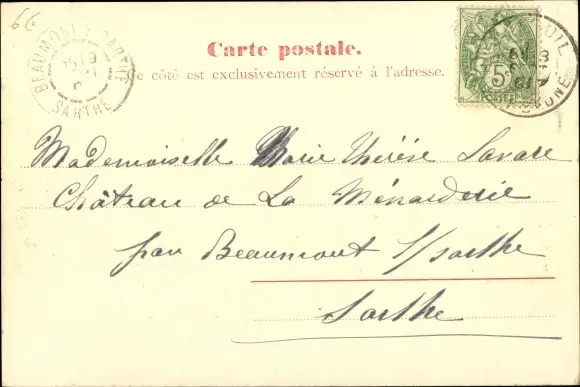 66
Carte postale.
Ce côté est exclusivement réservé à l'adresse.
BEAUMONT S SARTHE
SARTHE
5c
POSTES
Mademoiselle Marie Thérèse Lavare
Château de La Ménarderie
par Beaumont s/sarthe
Sarthe